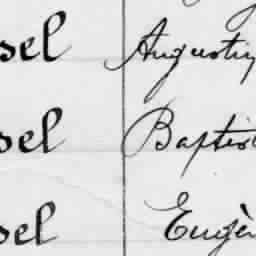 sel Augustin
sel Baptis
sel Eugèn